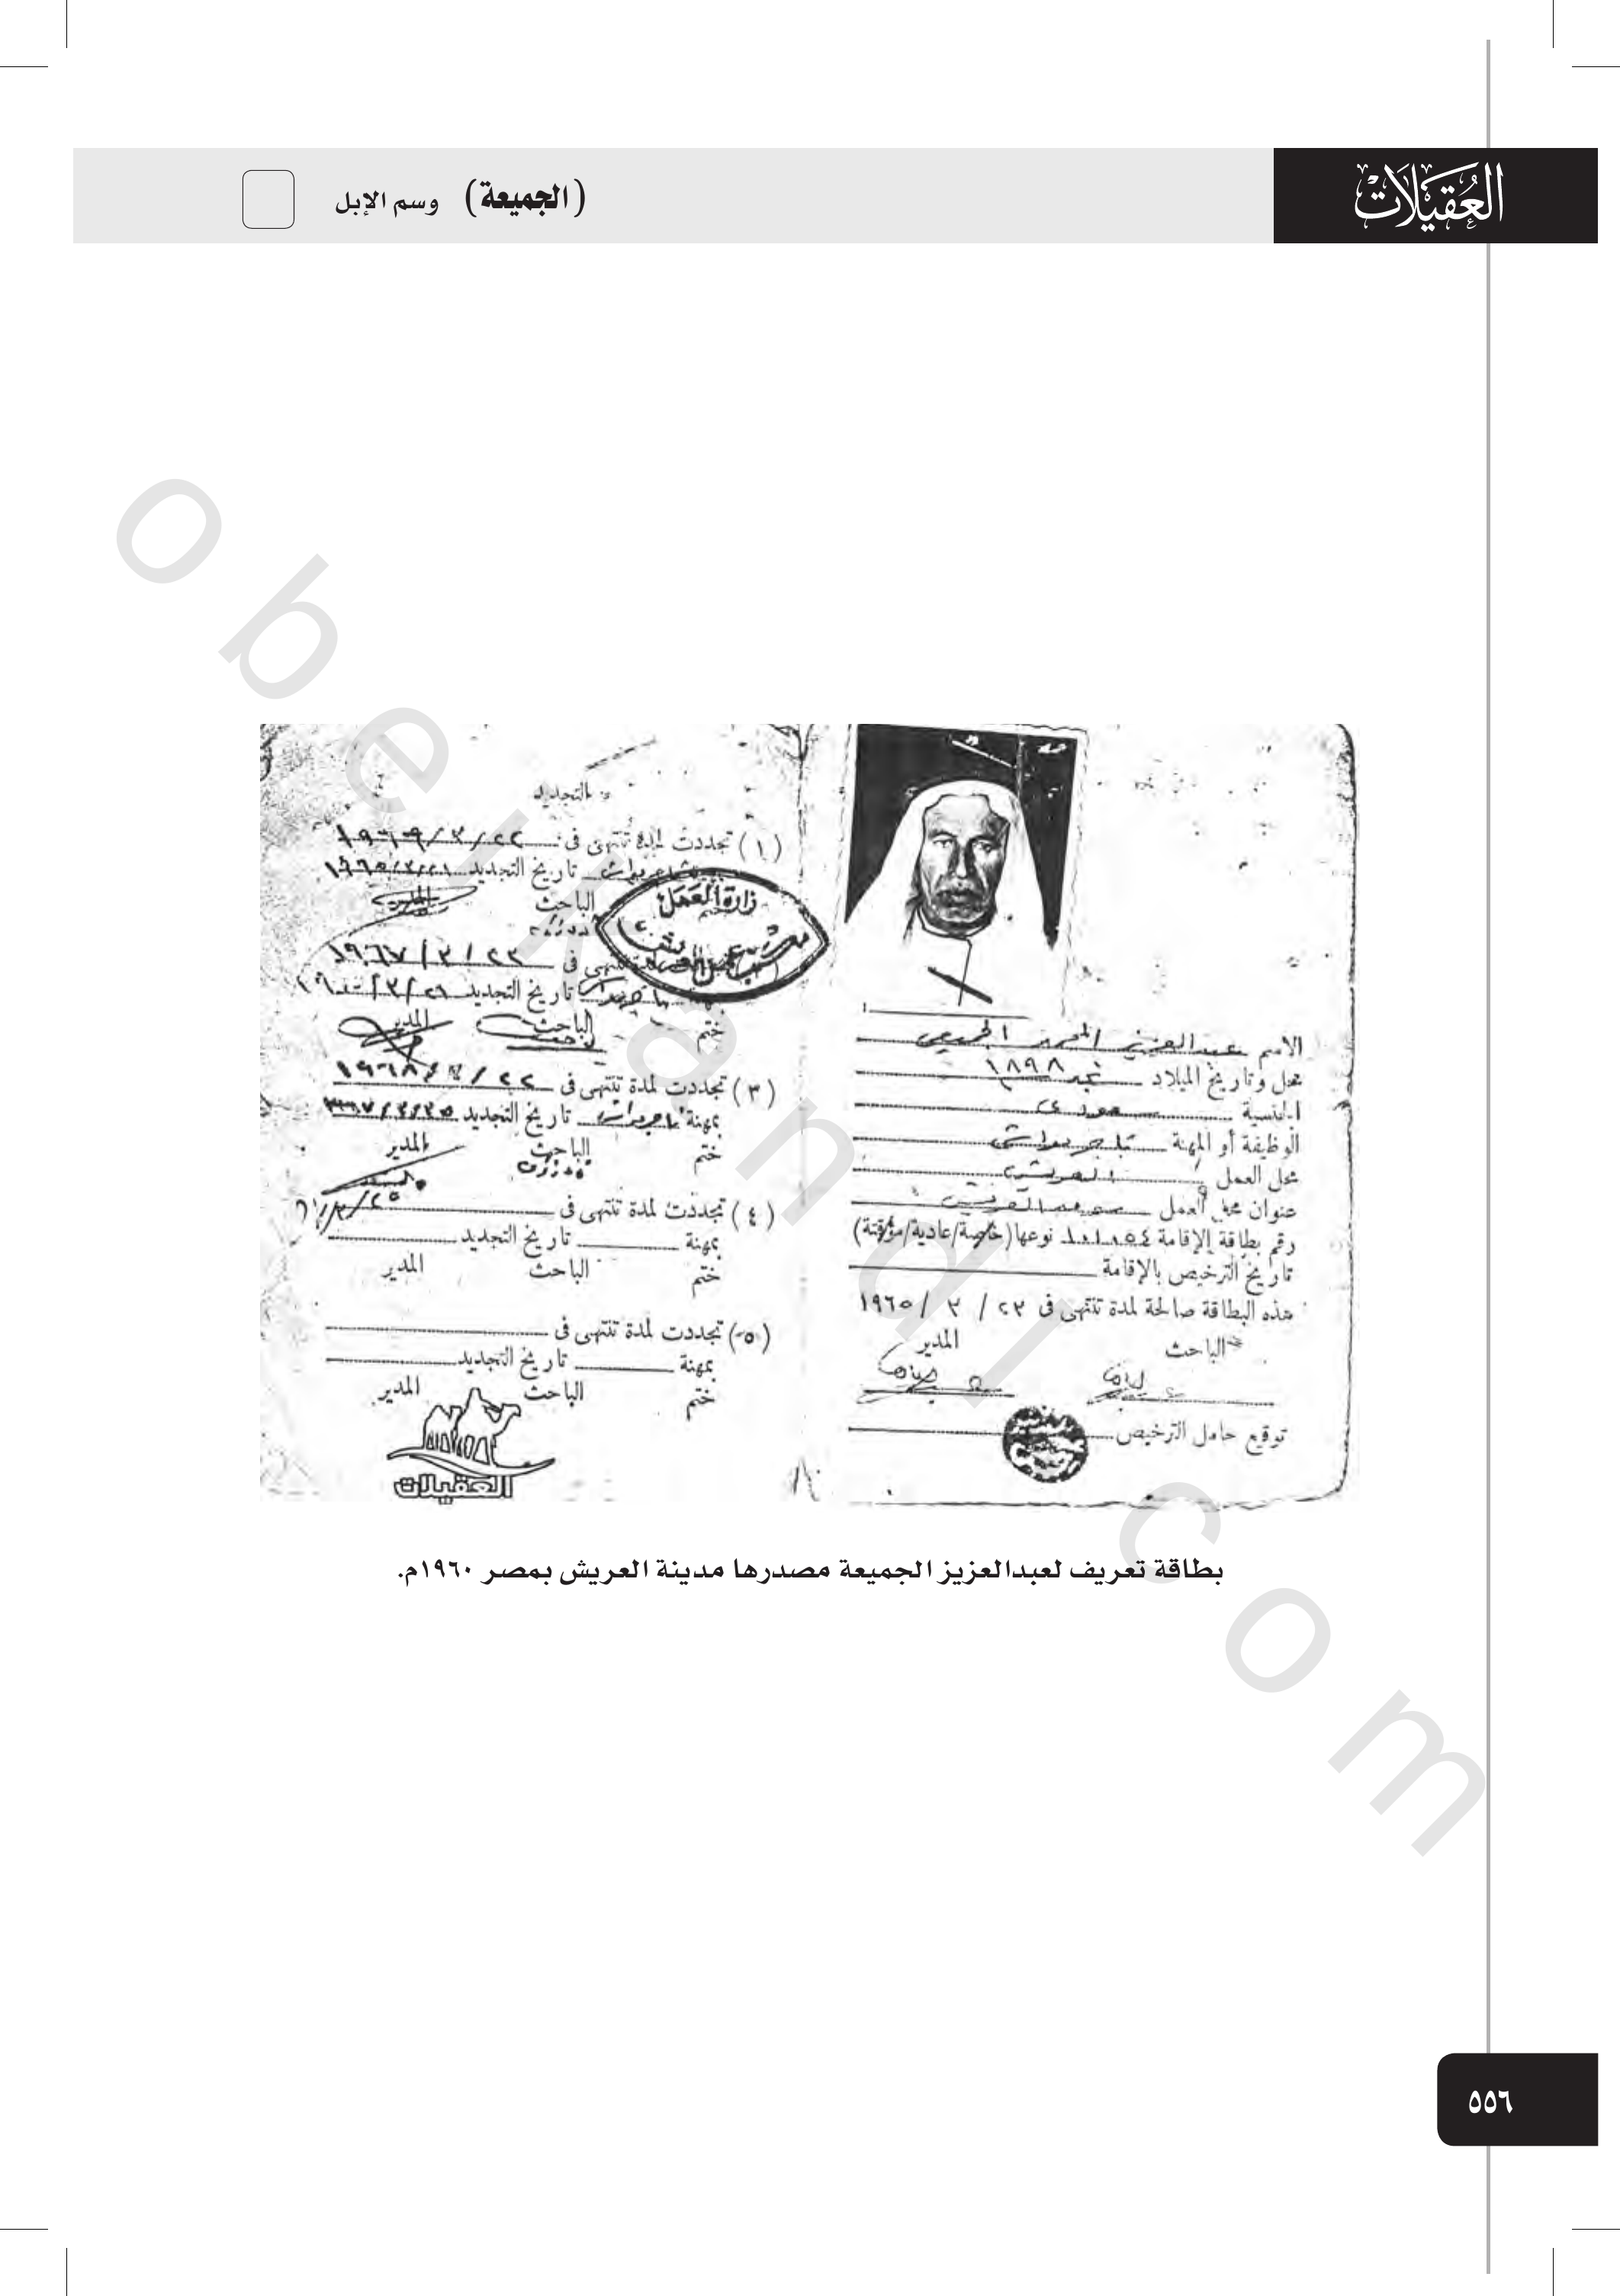 العُقَيلَاتْ
(الجميعة) وسم الإبل
الاسم عبدالعزيز المحمد الجميعي
محل وتاريخ الميلاد نجد ١٨٩٨
الجنسية سعودى
الوظيفة أو المهنة تاجر مواشى
محل العمل العريش
عنوان محل العمل العريش
رقم بطاقة الإقامة نوعها (خاصة/عادية/مؤقتة)
تاريخ الترخيص بالإقامة
هذه البطاقة صالحة لمدة تنتهى فى ٢٣ / ٣ / ١٩٦٥
الباحث المدير
توقيع حامل الترخيص
التجديد
(١) تجددت لمدة تنتهى فى
تاريخ التجديد
الباحث المدير
وزارة العمل
تنتهى فى ٢٣ / ٣ / ١٩٦٧
تاريخ التجديد
ختم الباحث المدير
(٣) تجددت لمدة تنتهى فى ٢٢ / ١٩٦٨
بمهنة تاريخ التجديد
ختم الباحث المدير
(٤) تجددت لمدة تنتهى فى
بمهنة تاريخ التجديد
ختم الباحث المدير
(٥) تجددت لمدة تنتهى فى
بمهنة تاريخ التجديد
ختم الباحث المدير
العقيلات
بطاقة تعريف لعبدالعزيز الجميعة مصدرها مدينة العريش بمصر ١٩٦٠م.
٥٥٦
obeikandl.com